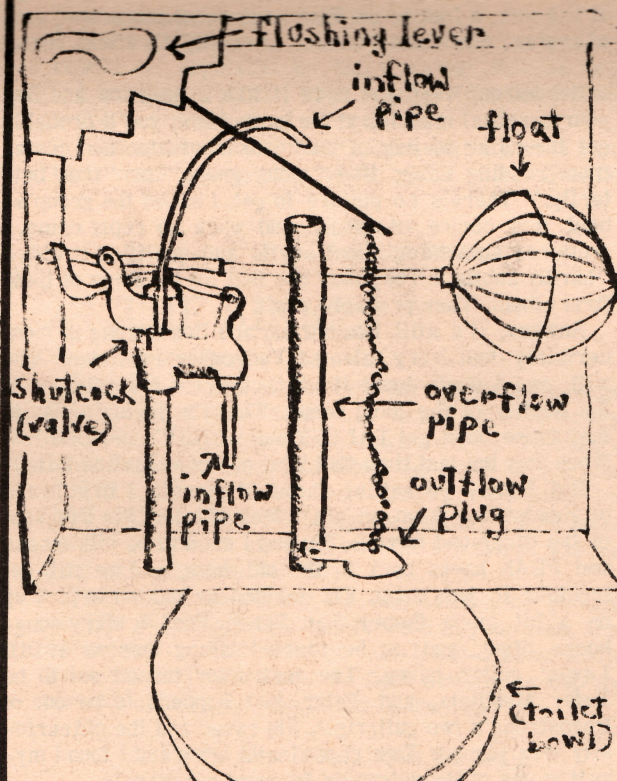 flushing lever
inflow
pipe
float
shutcock
(valve)
overflow
pipe
inflow
pipe
outflow
plug
(toilet
bowl)